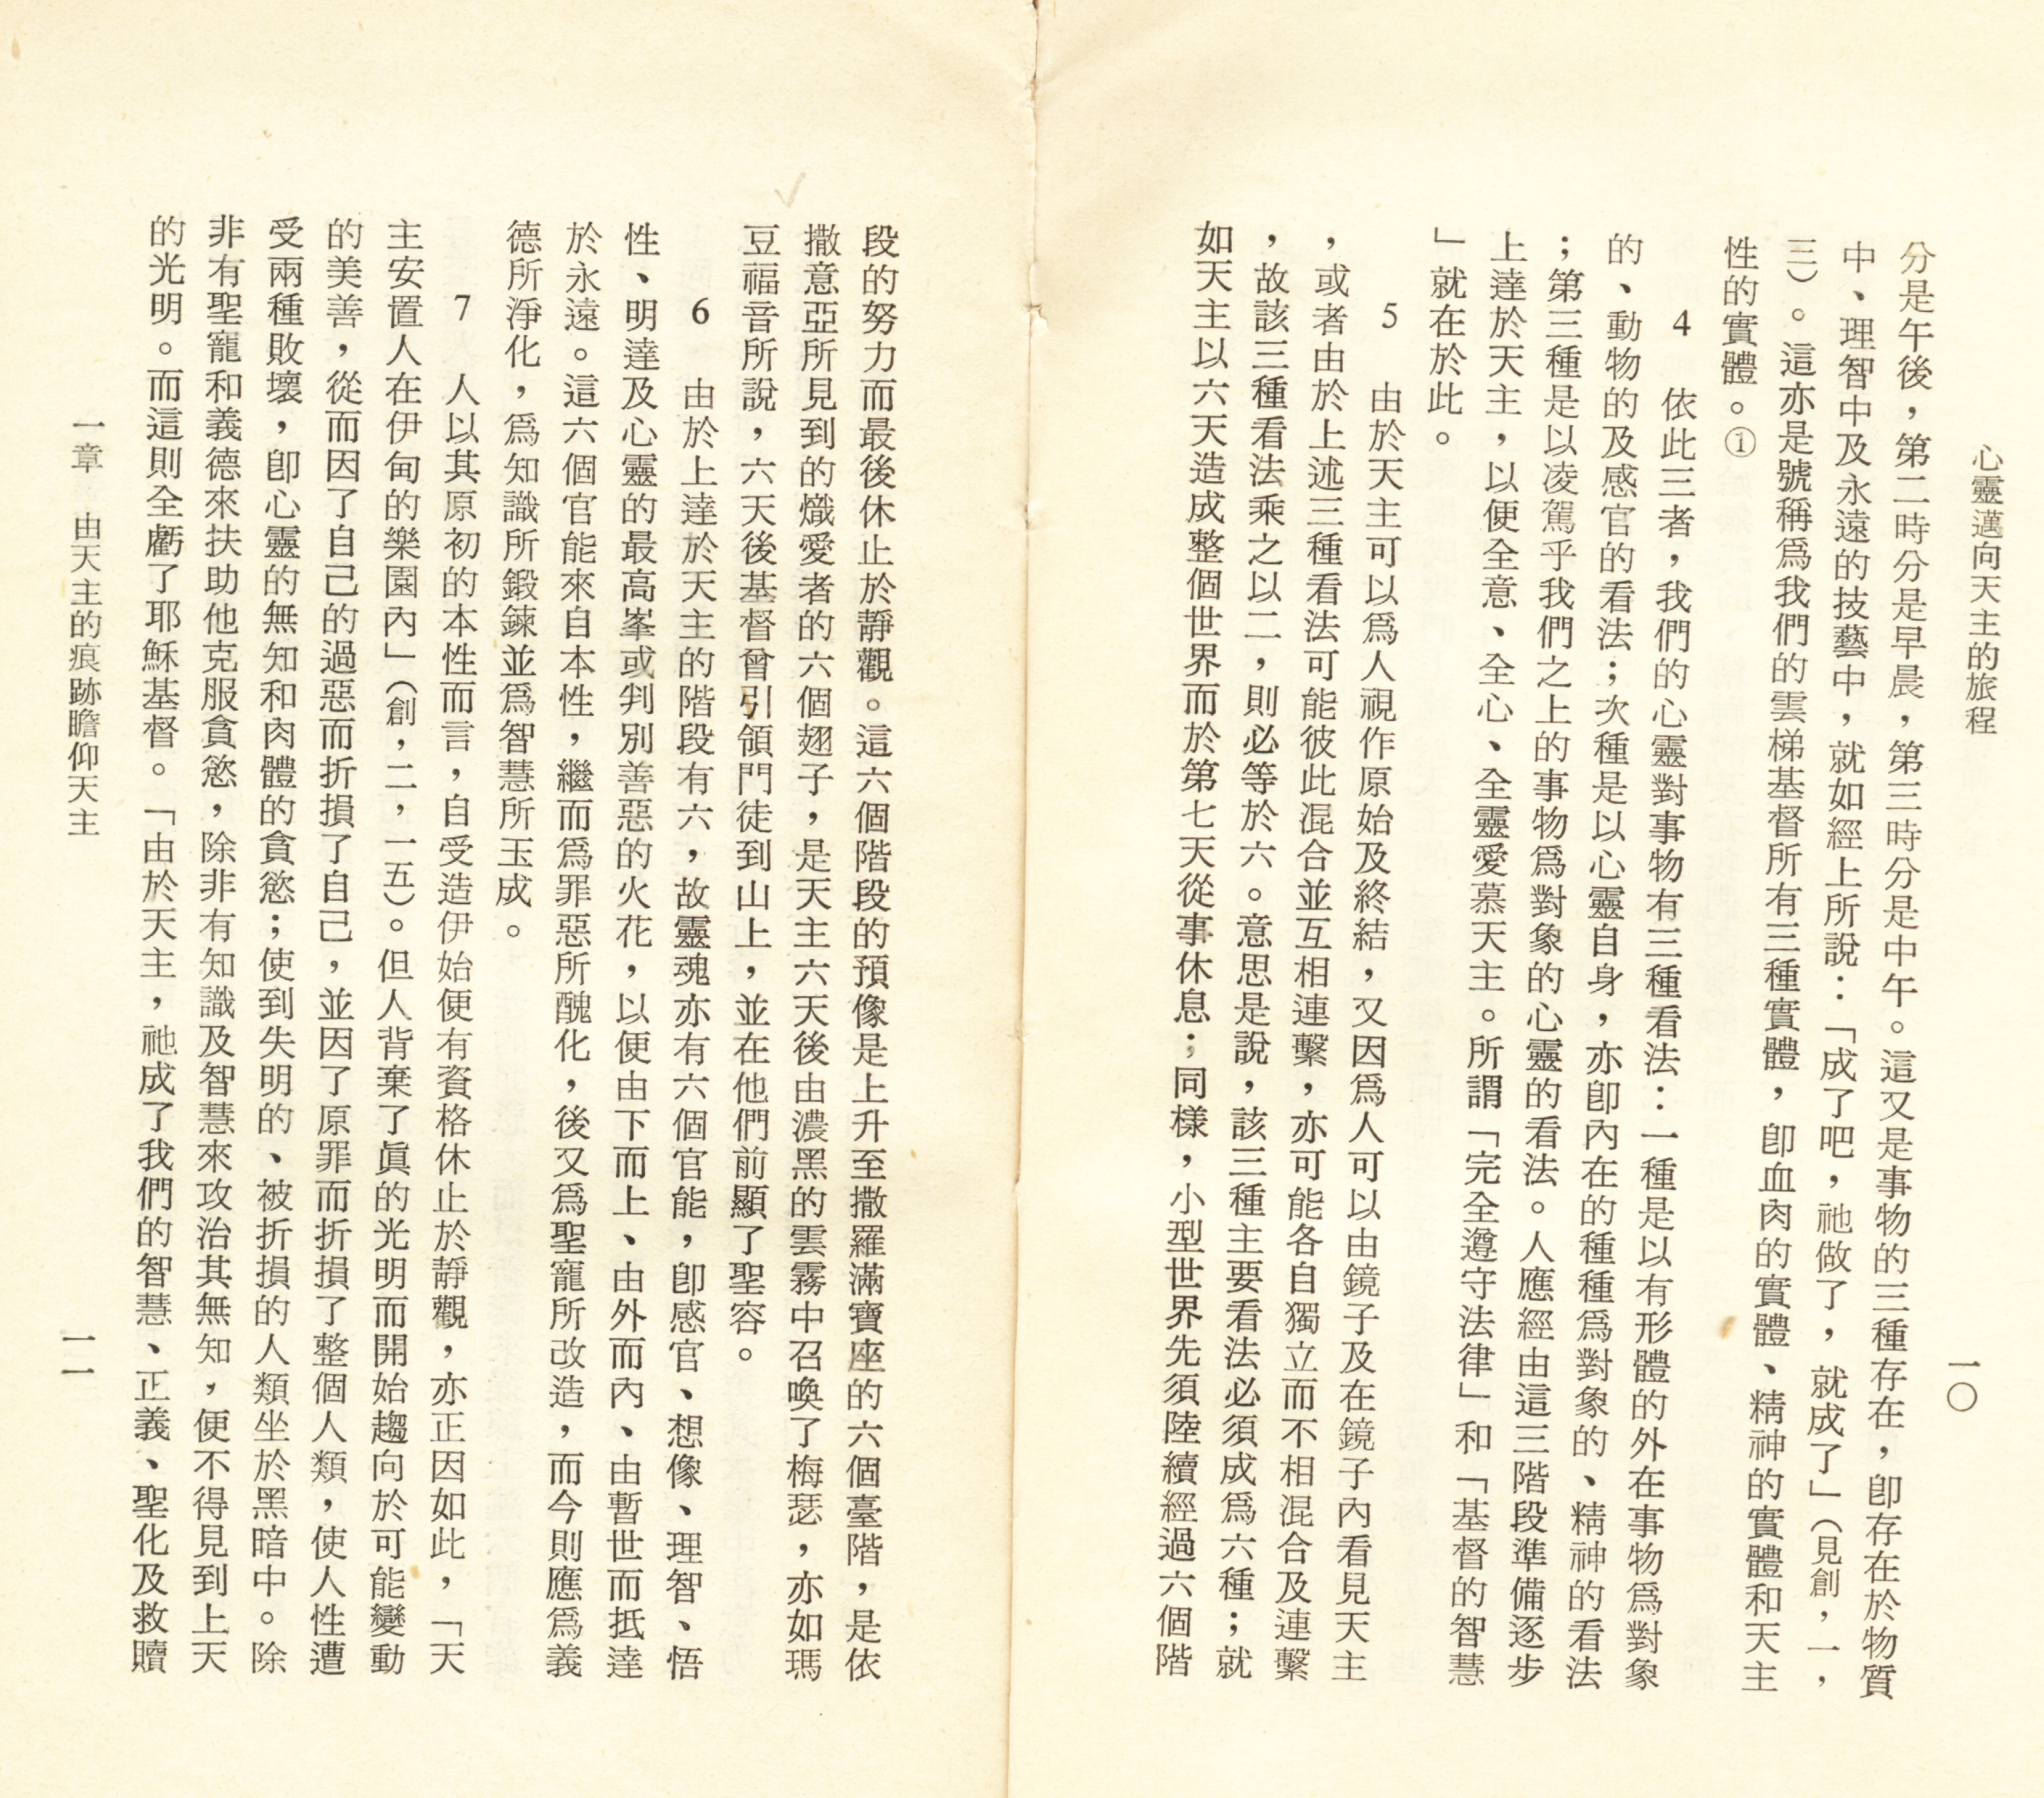 心靈邁向天主的旅程
一〇
分是午後，第二時分是早晨，第三時分是中午。這又是事物的三種存在，卽存在於物質
中、理智中及永遠的技藝中，就如經上所說：「成了吧，祂做了，就成了」（見創，一，
三）。這亦是號稱爲我們的雲梯基督所有三種實體，卽血肉的實體、精神的實體和天主
性的實體。①
4　依此三者，我們的心靈對事物有三種看法：一種是以有形體的外在事物爲對象
的、動物的及感官的看法；次種是以心靈自身，亦卽內在的種種爲對象的、精神的看法
；第三種是以凌駕乎我們之上的事物爲對象的心靈的看法。人應經由這三階段準備逐步
上達於天主，以便全意、全心、全靈愛慕天主。所謂「完全遵守法律」和「基督的智慧
」就在於此。
5　由於天主可以爲人視作原始及終結，又因爲人可以由鏡子及在鏡子內看見天主
，或者由於上述三種看法可能彼此混合並互相連繫，亦可能各自獨立而不相混合及連繫
，故該三種看法乘之以二，則必等於六。意思是說，該三種主要看法必須成爲六種；就
如天主以六天造成整個世界而於第七天從事休息；同樣，小型世界先須陸續經過六個階
段的努力而最後休止於靜觀。這六個階段的預像是上升至撒羅滿寶座的六個臺階，是依
撒意亞所見到的熾愛者的六個翅子，是天主六天後由濃黑的雲霧中召喚了梅瑟，亦如瑪
豆福音所說，六天後基督曾引領門徒到山上，並在他們前顯了聖容。
6　由於上達於天主的階段有六，故靈魂亦有六個官能，卽感官、想像、理智、悟
性、明達及心靈的最高峯或判別善惡的火花，以便由下而上、由外而內、由暫世而抵達
於永遠。這六個官能來自本性，繼而爲罪惡所醜化，後又爲聖寵所改造，而今則應爲義
德所淨化，爲知識所鍛鍊並爲智慧所玉成。
7　人以其原初的本性而言，自受造伊始便有資格休止於靜觀，亦正因如此，「天
主安置人在伊甸的樂園內」（創，二，一五）。但人背棄了眞的光明而開始趨向於可能變動
的美善，從而因了自己的過惡而折損了自己，並因了原罪而折損了整個人類，使人性遭
受兩種敗壞，卽心靈的無知和肉體的貪慾；使到失明的、被折損的人類坐於黑暗中。除
非有聖寵和義德來扶助他克服貪慾，除非有知識及智慧來攻治其無知，便不得見到上天
的光明。而這則全虧了耶穌基督。「由於天主，祂成了我們的智慧、正義、聖化及救贖
一章　由天主的痕跡瞻仰天主
一一